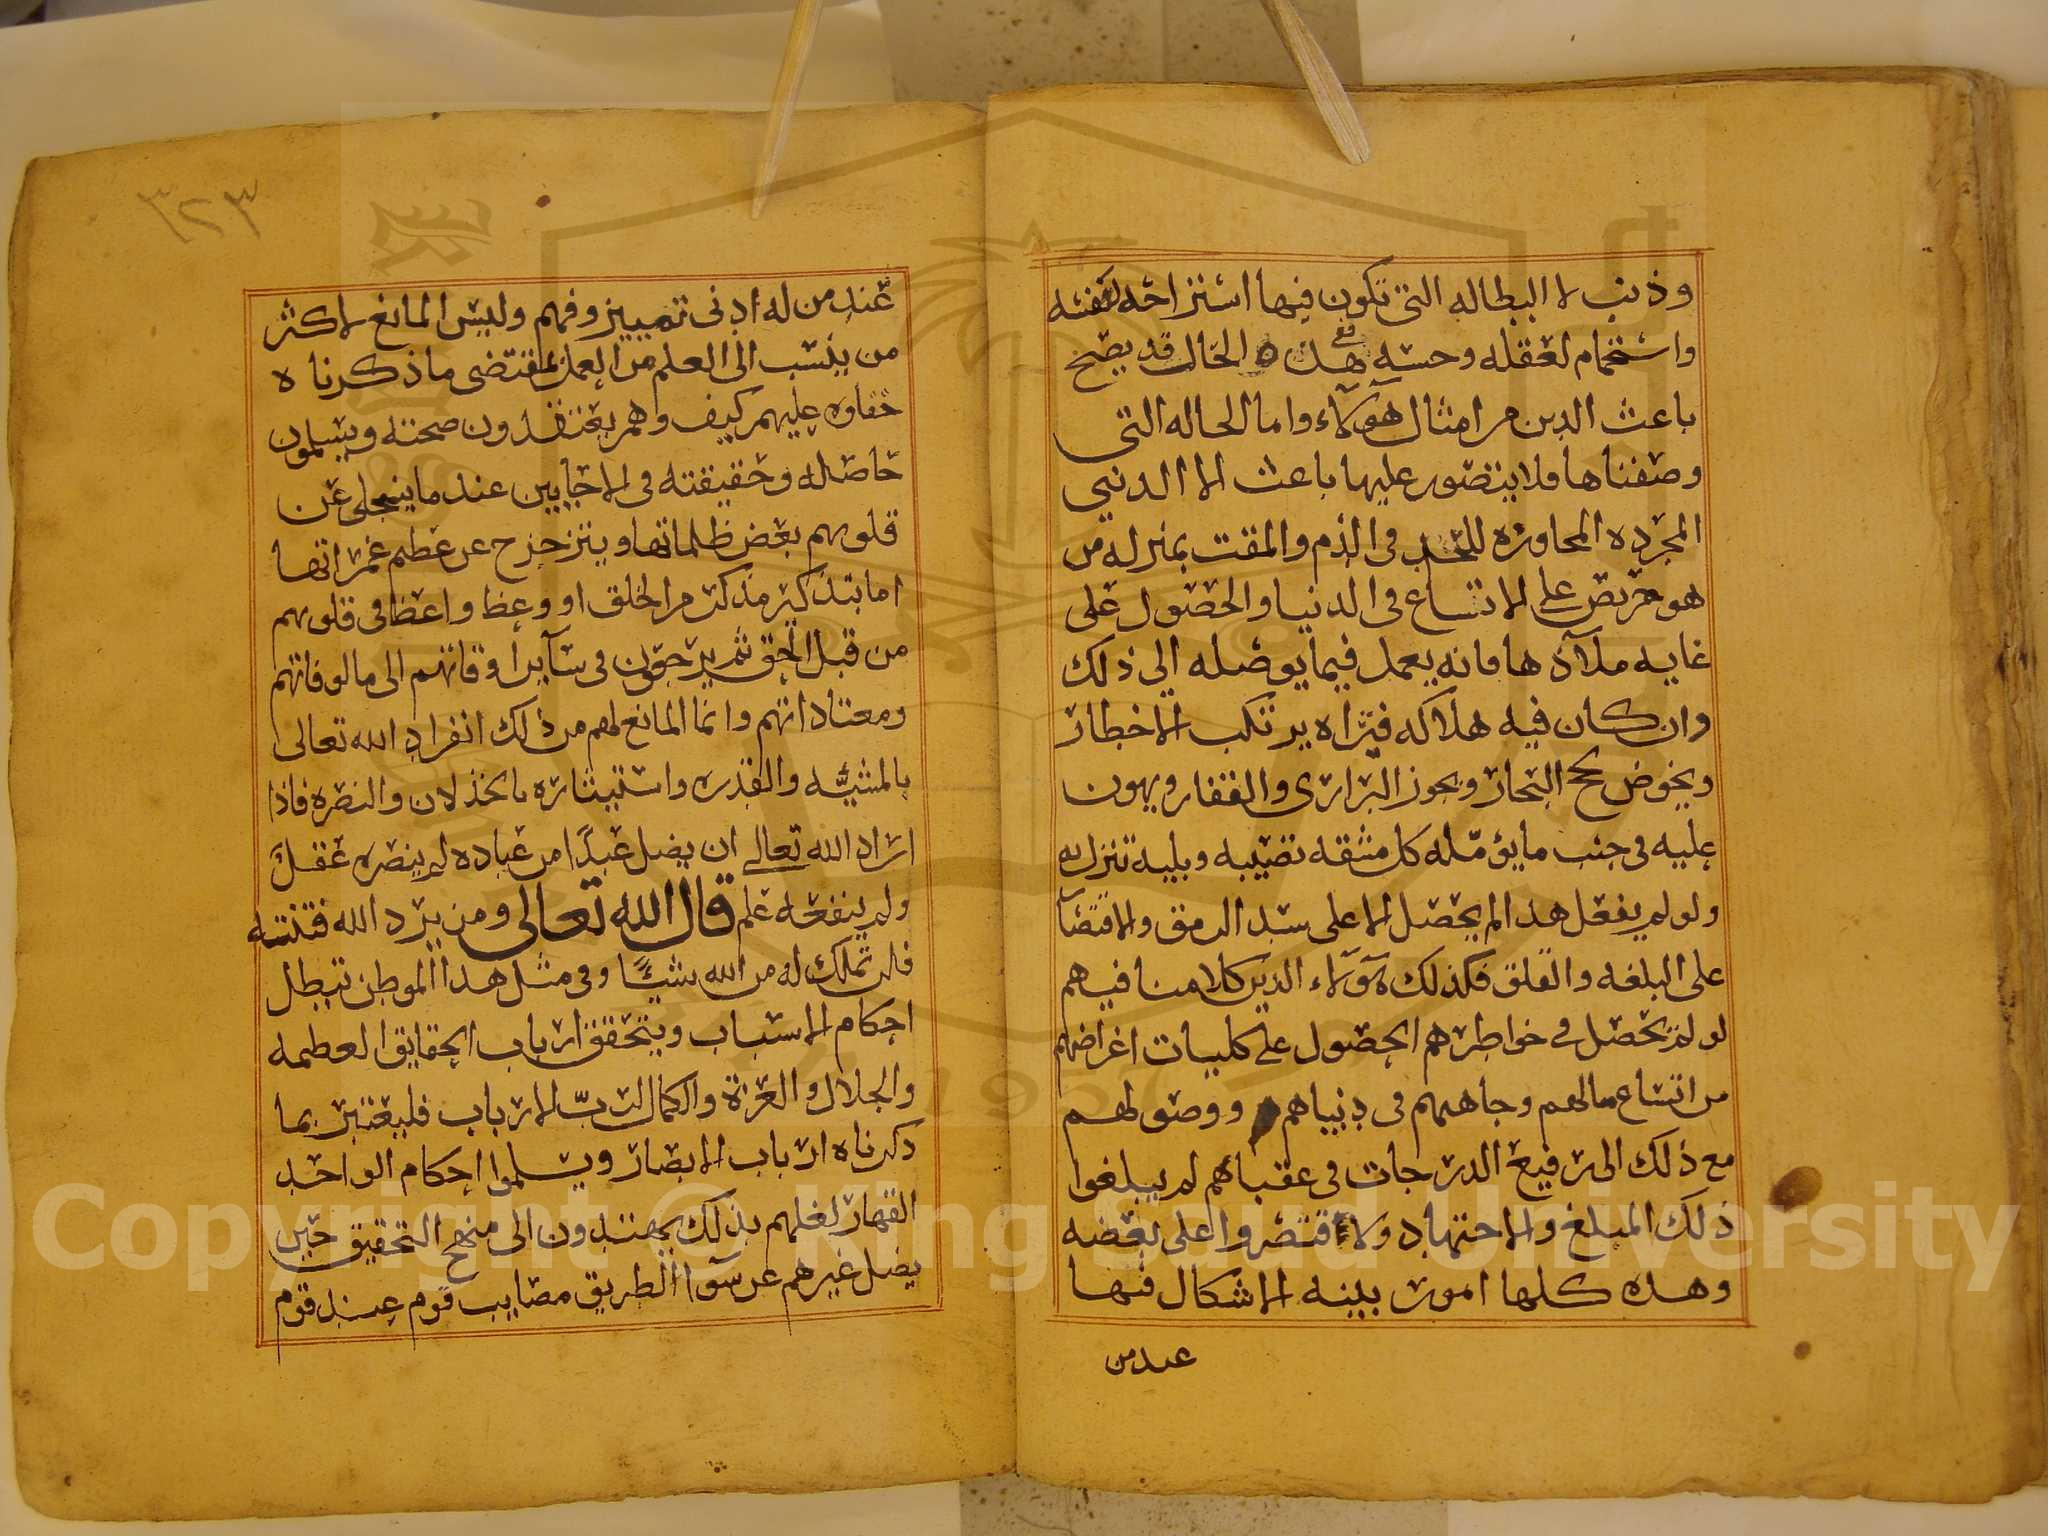 وذنب لا البطاله التي تكون فيها استراحه لنفسه
واستجمام لعقله وحسه فهذه الحال قد يصح
باعث الدين من امثال هولاء واما الحاله التي
وصفناها فلا يتصور عليها باعث الا الدنيى
المجرده المجاوزه للحد في الذم والمقت بمنزله من
هو حريص على الاتساع في الدنيا والحصول على
غايه ملاذها فانه يعمل فيما يوصله الي ذلك
وان كان فيه هلاكه فتراه يرتكب الاخطار
ويخوض لجج البحار ويجوز البراري والقفار ويهون
عليه في جنب ما يؤمّله كل مشقه تصيبه وبليه تنزل به
ولو لم يفعل هذا لم يحصل الا على سد الرمق والاقتصا
على البلغه والقلق فكذلك هؤلاء الذين كلامنا فيهم
لو لم يحصل في خواطرهم الحصول على كليات اغراضهم
من اتساع مالهم وجاههم في دنياهم ووصولهم
مع ذلك الى رفيع الدرجات في عقباهم لم يبلغوا
ذلك المبلغ والاجتهاد ولاقتصروا على بعضه
وهذه كلها امور بينه لا اشكال فيها
عند من
٣٢٣
عند من له ادنى تمييز وفهم وليس المانع لاكثر
من ينسب الى العلم من العمل بمقتضى ما ذكرناه
خفاوه عليهم كيف وهم يعتقدون صحته ويسلمون
حاصله وحقيقته في الاحايين عند ما ينجلى عن
قلوبهم بعض ظلماتها ويتزحزح عن عظيم غمراتها
اما بتذكير مذكر من الخلق او وعظ واعظ في قلوبهم
من قبل الحق ثم يرجعون في سآير اوقاتهم الى مالوفاتهم
ومعتاداتهم وانما المانع لهم من ذلك انفراد الله تعالى
بالمشيّه والقدره واستيثاره بالخذلان والنصره فاذا
اراد الله تعالى ان يضل عبدًا من عباده لم ينصره عقل
ولم ينفعه علم قال الله تعالى ومن يرد الله فتنته
فلن تملك له من الله شيئًا وفي مثل هذا الموطن تبطل
احكام الاسباب ويتحقق ارباب الحقايق العظمه
والجلال والعزة والكمال لربّ الارباب فليعتبر بما
ذكرناه ارباب الابصار ويسلموا احكام الواحد
القهار لعلهم بذلك يهتدون الى منهج التحقيق حين
يضل غيرهم عن سوآ الطريق مصايب قوم عند قوم